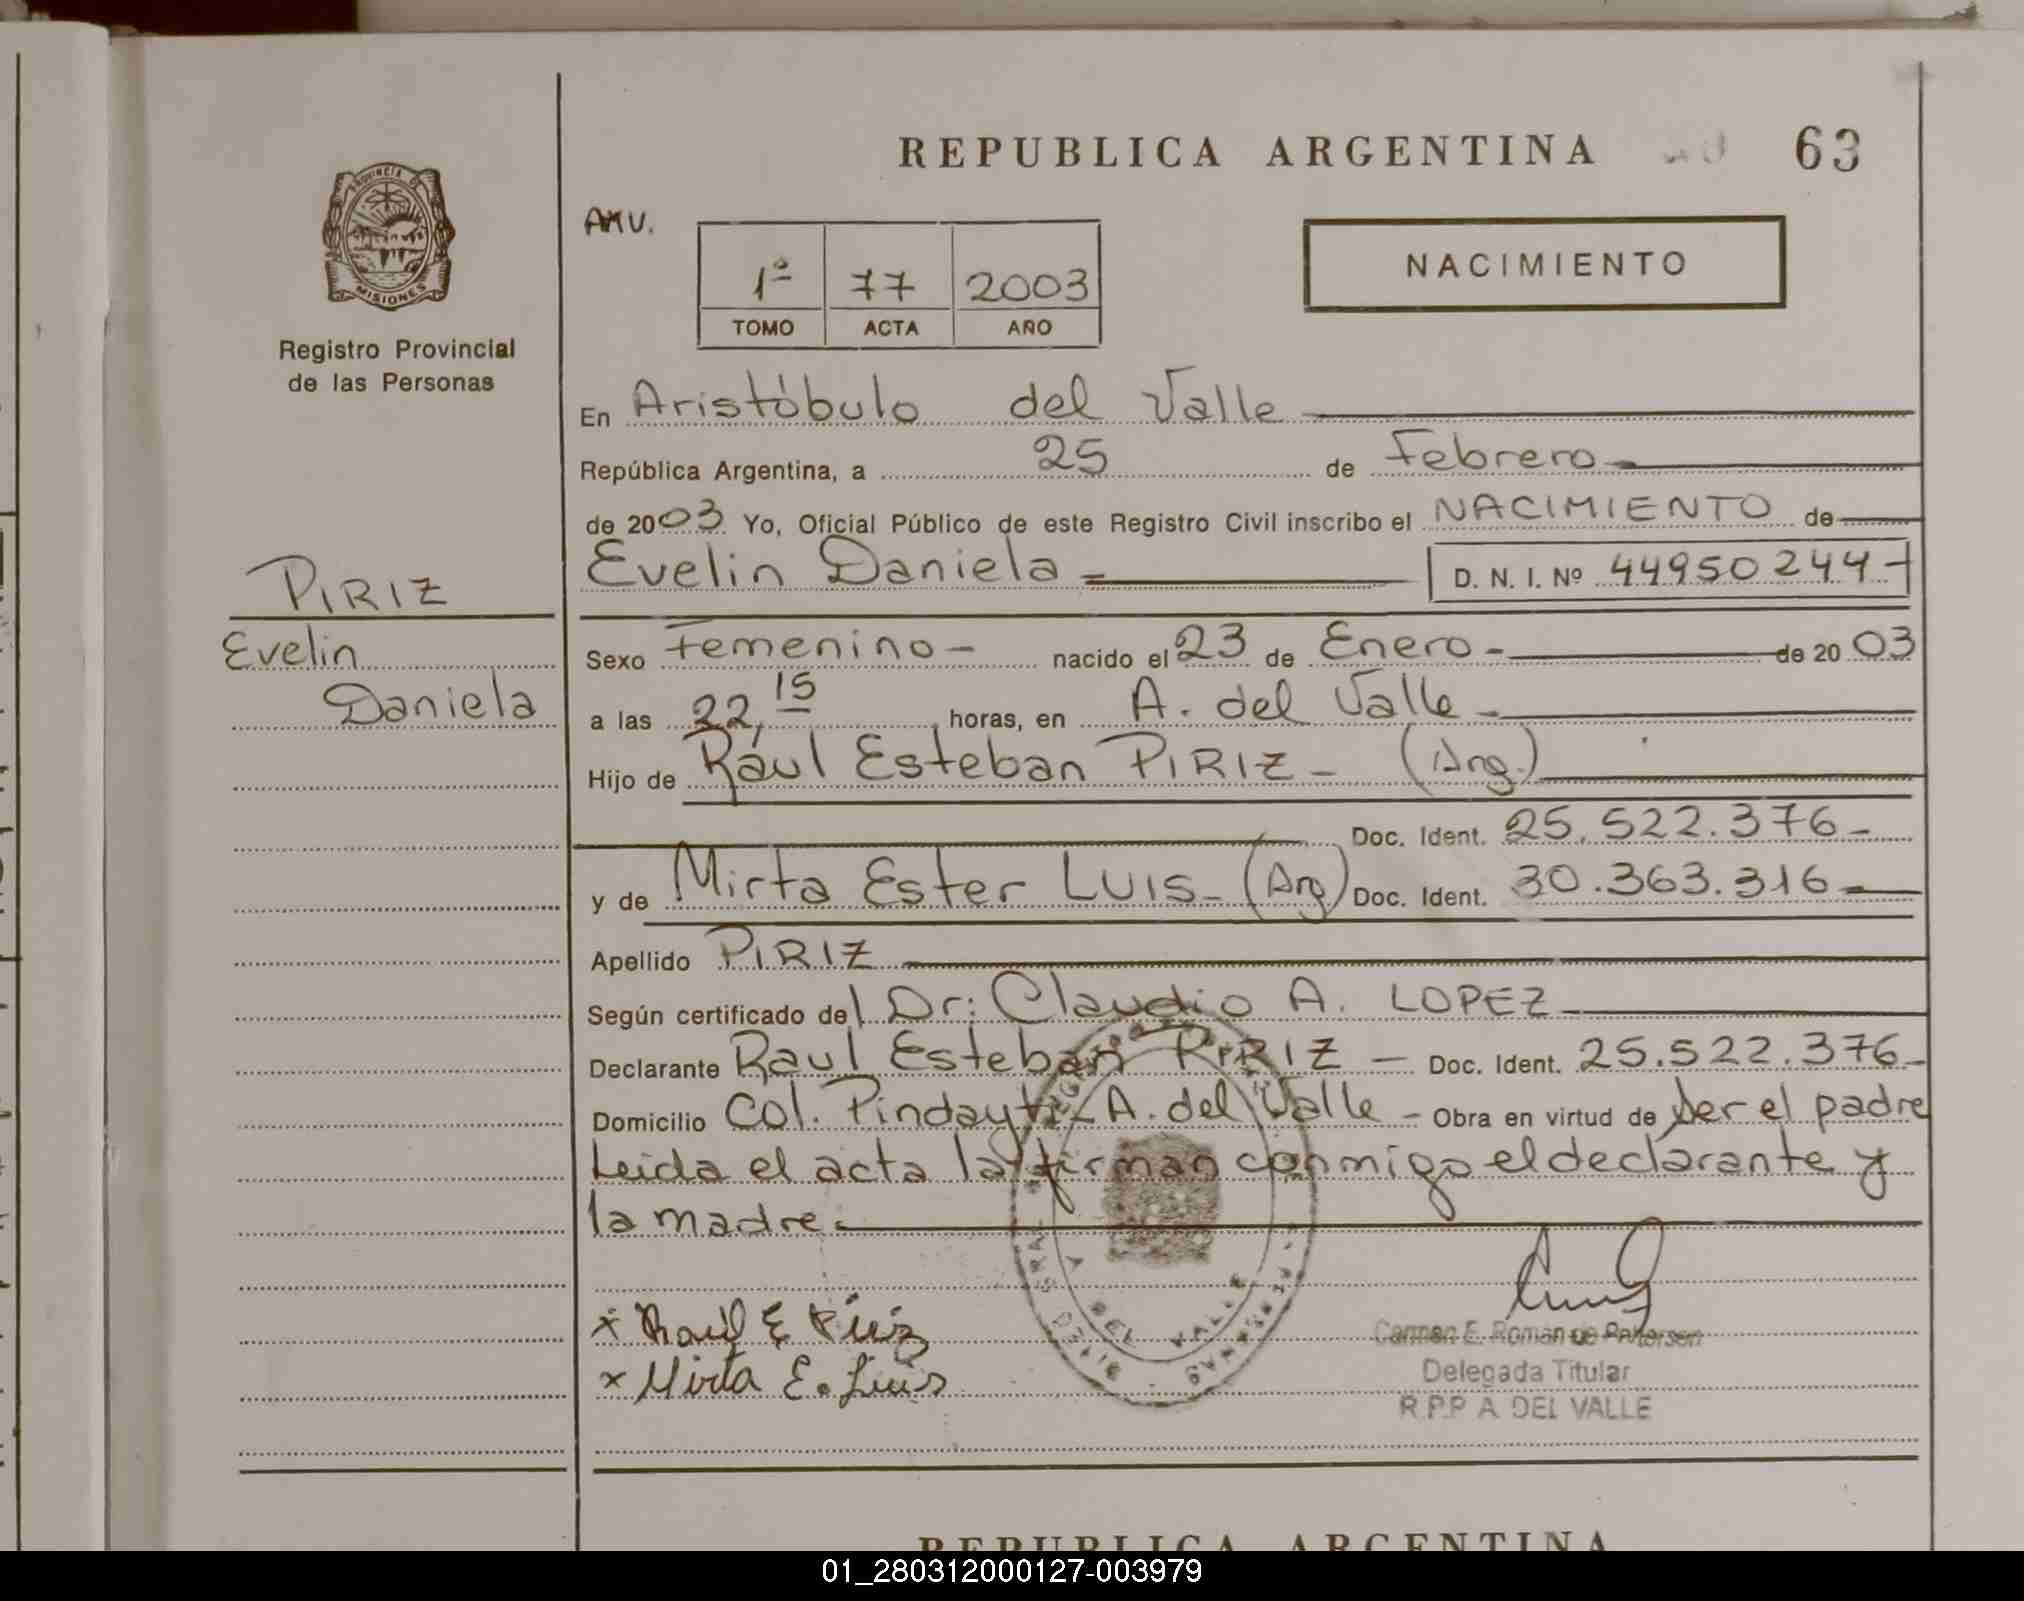 REPUBLICA ARGENTINA 63
PROVINCIA DE
MISIONES
Registro Provincial
de las Personas
AMV.
1º 77 2003
TOMO ACTA AÑO
NACIMIENTO
En Aristóbulo del Valle
República Argentina, a 25 de Febrero
de 2003 Yo, Oficial Público de este Registro Civil inscribo el NACIMIENTO de
Evelin Daniela D. N. I. Nº 44950244
PIRIZ
Evelin
Daniela
Sexo Femenino - nacido el 23 de Enero - de 2003
a las 22,15 horas, en A. del Valle -
Hijo de Raúl Esteban PIRIZ - (Arg.)
Doc. Ident. 25.522.376 -
y de Mirta Ester LUIS - (Arg) Doc. Ident. 30.363.316 -
Apellido PIRIZ
Según certificado del Dr: Claudio A. LOPEZ
Declarante Raul Esteban PIRIZ - Doc. Ident. 25.522.376 -
Domicilio Col. Pindayti - A. del Valle - Obra en virtud de ser el padre
Leida el acta la firman conmigo el declarante y
la madre.
x Raúl E Piriz
x Mirta E. Luis
Carmen E. Roman de
Delegada Titular
R.P.P A DEL VALLE
DEL VALLE
REPUBLICA ARGENTINA
01_280312000127-003979